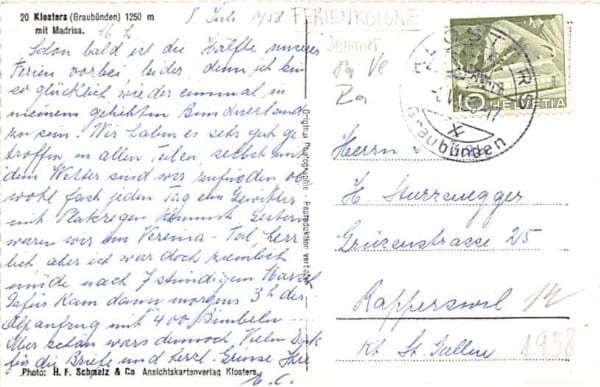 20 Klosters (Graubünden) 1250 m
mit Madrisa.
5 Juli 1958
M. L.
Schon bald ist die Hälfte unserer
Ferien vorbei, leider, denn ich bin
so glücklich wieder einmal in
meinem geliebten Bündnerland
zu sein. Wir haben es sehr gut ge-
troffen in allen Teilen, selbst mit
dem Wetter sind wir zufrieden ob-
wohl fast jeden Tag ein Gewitter
mit Platzregen kommt. Gestern
waren wir im Vereina-Tal, herr-
lich aber ich war doch ziemlich
müde nach 7 stündigem Marsch
Dafür kam dann morgens 3 h der
Alpaufzug mit 400 Bimbeln
Aber schön wars dennoch, Vielen Dank
für die Briefe und herzl. Grüsse Ihre
H. C.
Photo: H. F. Schmalz & Co Ansichtskartenverlag Klosters
Original Photographie - Reproduktion verboten
FERIENKOLONIE
Sommer
KLOSTERS
Graubünden
10 HELVETIA
Herrn
H. Sturzenegger
Grüzenstrasse 25
Rapperswil
Kt. St. Gallen
1958